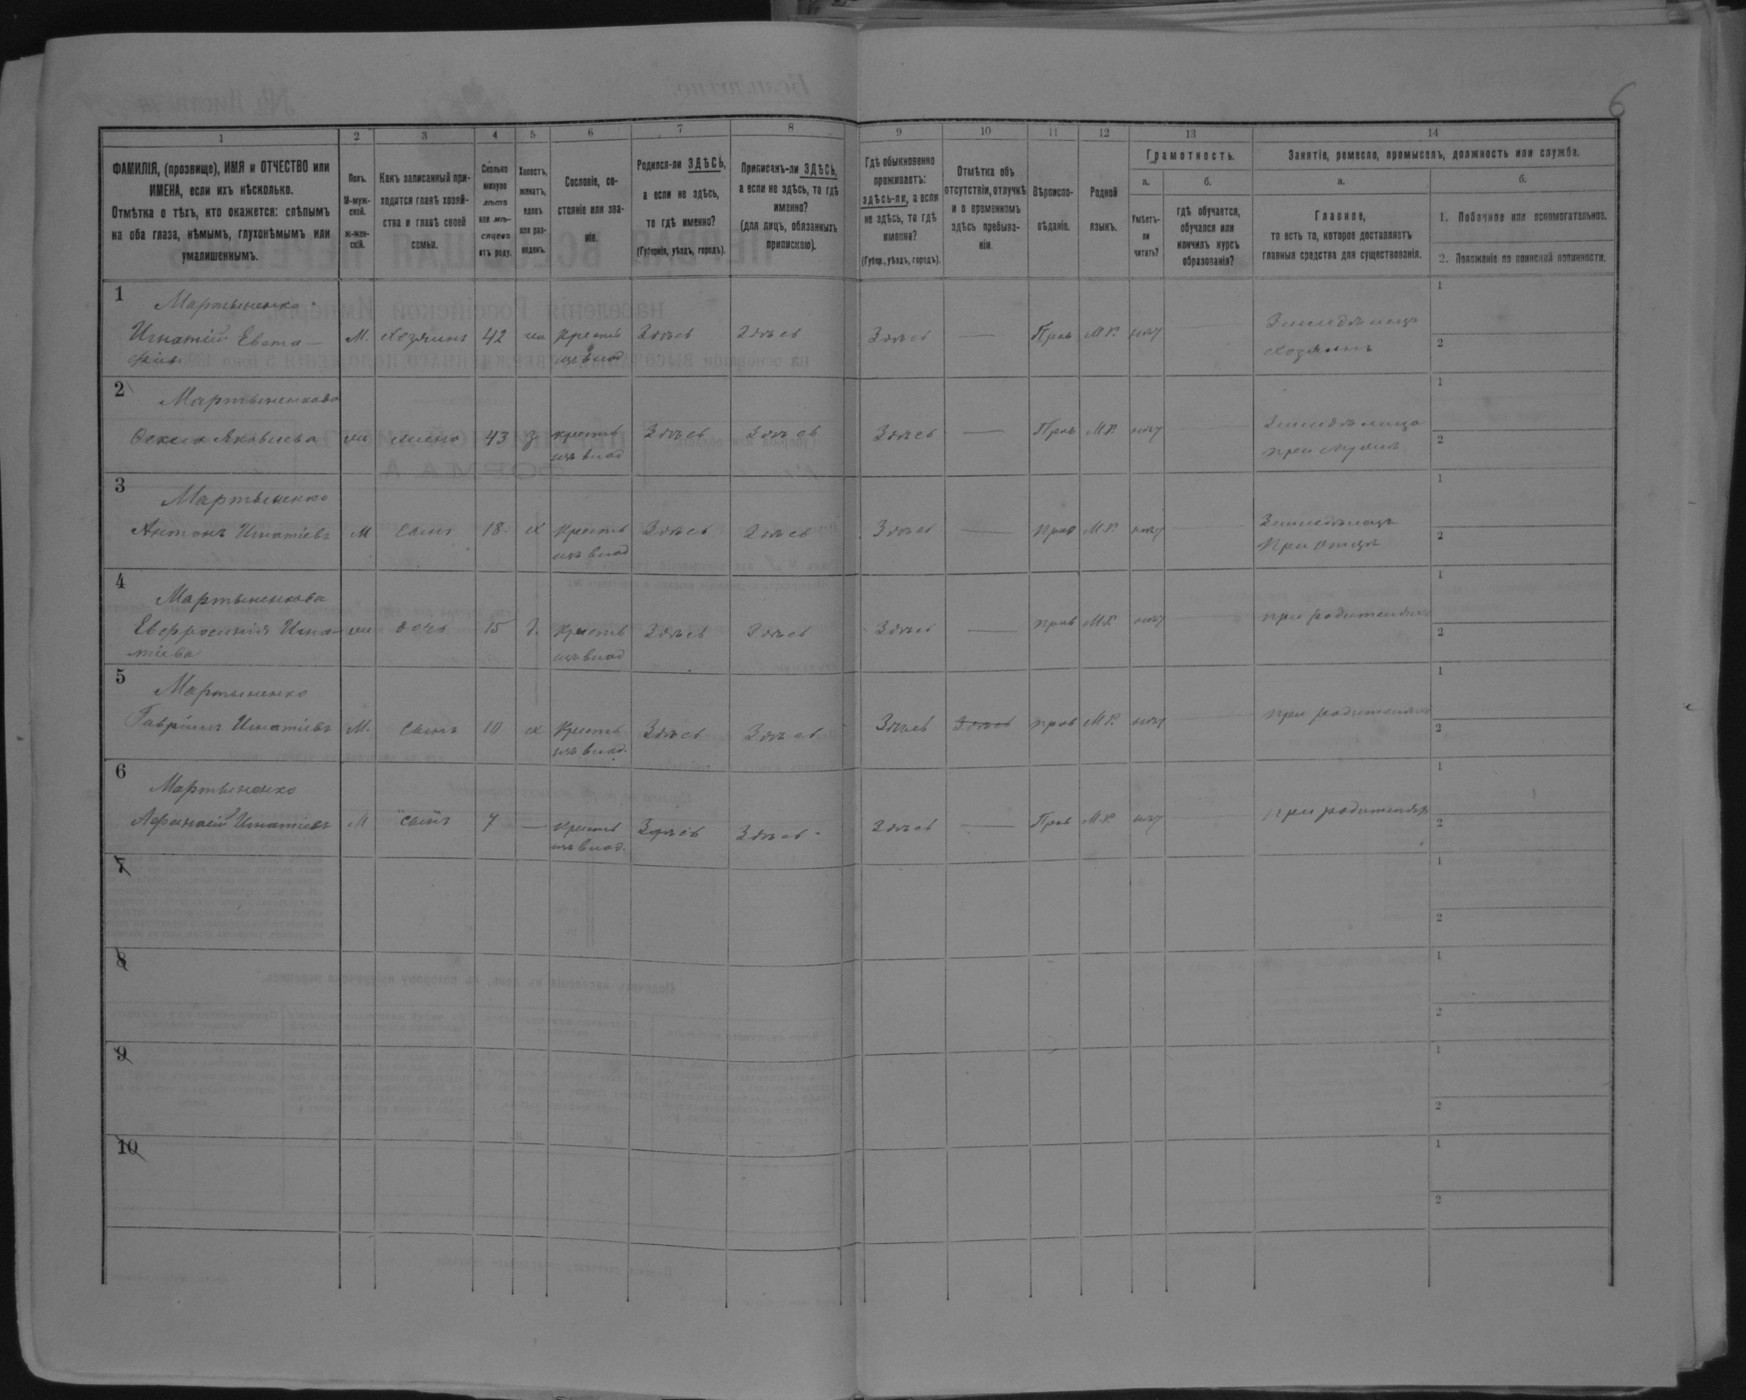 6
1 2 3 4 5 6 7 8 9 10 11 12 13 14
ФАМИЛІЯ, (прозвище), ИМЯ и ОТЧЕСТВО или
ИМЕНА, если ихъ нѣсколько.
Отмѣтка о тѣхъ, кто окажется: слѣпымъ
на оба глаза, нѣмымъ, глухонѣмымъ или
умалишеннымъ.
Полъ.
М-муж-
ской.
ж-жен-
скій.
Какъ записанный при-
ходится главѣ хозяй-
ства и главѣ своей
семьи.
Сколько
минуло
лѣтъ
или мѣ-
сяцевъ
отъ роду.
Холостъ,
женатъ,
вдовъ
или раз-
веденъ.
Сословіе, со-
стояніе или зва-
ніе.
Родился-ли ЗДѢСЬ,
а если не здѣсь,
то гдѣ именно?
(Губернія, уѣздъ, городъ).
Приписанъ-ли ЗДѢСЬ,
а если не здѣсь, то гдѣ
именно?
(для лицъ, обязанныхъ
припискою).
Гдѣ обыкновенно
проживаетъ:
здѣсь-ли, а если
не здѣсь, то гдѣ
именно?
(Губер., уѣздъ, городъ).
Отмѣтка объ
отсутствіи, отлучкѣ
и о временномъ
здѣсь пребыва-
ніи.
Вѣроиспо-
вѣданіе.
Родной
языкъ.
Грамотность.
а.
Умѣетъ-
ли
читать?
б.
гдѣ обучается,
обучался или
кончилъ курсъ
образованія?
Занятіе, ремесло, промыселъ, должность или служба.
а.
Главное,
то есть то, которое доставляетъ
главныя средства для существованія.
б.
1. Побочное или вспомогательное.
2. Положеніе по воинской повинности.
1 Мартыненко
Игнатій Евста-
М. Хозяинъ 42 жи Крестъ Здѣсь Здѣсь Здѣсь — Прав М.Р. нѣт Земледѣлецъ 1
изъ влад хозяинъ 2
2 Мартыненкова
Яковлева жи жена 43 з крестъ Здѣсь Здѣсь Здѣсь — Прав М.Р. нѣт 1
изъ влад при мужѣ 2
3 Мартыненко
Антонъ Игнатіевъ М сынъ 18 х Крестъ Здѣсь Здѣсь Здѣсь — прав М.Р. нѣт Земледѣлецъ 1
изъ влад При отцѣ 2
4 Мартыненкова
Игна жи дочь 15 д. Крестъ Здѣсь Здѣсь Здѣсь — прав М.Р. нѣт при родителяхъ 1
тіева изъ влад 2
5 Мартыненко
Гавріилъ Игнатіевъ М. сынъ 10 х Крестъ Здѣсь Здѣсь Здѣсь Здѣсь прав М.Р. нѣт при родителяхъ 1
изъ влад. 2
6 Мартыненко
Афанасій Игнатіевъ М сынъ 7 — крестъ Здѣсь Здѣсь Здѣсь — Прав М.Р. нѣт при родителяхъ 1
изъ влад. 2
7 1
2
8 1
2
9 1
2
10 1
2